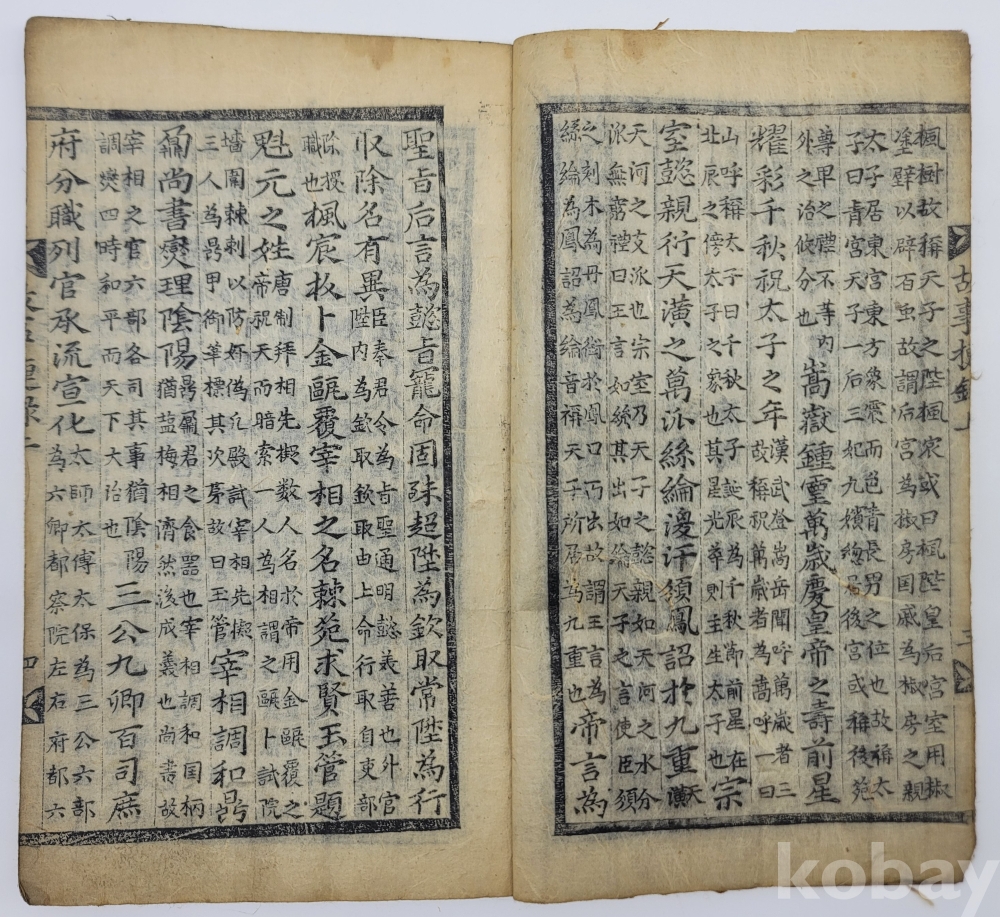 楓厨故稱天子之陛楓宸或曰楓陛皇后宮室用椒
塗壁以辟百虫故謂后宮為椒房国戚為椒房之親
太子居東宮東方象震而色青長男之位也故稱太
子曰青宮天子一后三妃九嬪緫居後宮或稱後苑
尊卑之禮不等內
外之治攸分也
嵩嶽鍾靈萬歲慶皇帝之壽前星
耀彩千秋祝太子之年
漢武登嵩岳聞呼萬歲者三
故稱祝萬歲者為嵩呼一曰
山呼稱太子曰千秋太子誕辰為千秋節前星在
北辰之傍太子之象也其星光華則主生太子也
宗
室懿親衍天潢之萬派絲綸渙汗頒鳳詔扵九重
天潢
天河之支派也宗室乃天子之懿親如天河之水分
派無窮禮曰王言如絲其出如綸天子之言使臣須
之刻木為丹鳳銜於鳳口乃出故謂王言為
絲綸為鳳詔為綸音稱天子所居為九重也
帝言為
故事
三
聖旨后言為懿旨寵命固殊超陞為欽取常陞為行
収除名有異
臣奉君令為旨聖通明懿羙善也外官
陞內為欽取欽取由上命行取自吏部
除授
職也
楓宸枚卜金甌覆宰相之名棘苑求賢玉管題
魁元之姓
唐制拜相先擬数人名於帝用金甌覆之
帝祝天而暗索一人為相謂之甌卜試院
墻圍棘刺以防奸偽凢殿試宰相先擬
三人為鼎甲御筆標其次苐故曰玉管
宰相調和鼎
鼐尚書燮理陰陽
鼎鼐君之食器也宰相調和国柄
猶塩梅相濟然後成羙也尚書故
宰相之官六部各司其事猶陰陽
調燮四時和平而天下大治也
三公九卿百司庶
府分職列官承流宣化
太師太傅太保為三公六部
為六卿都察院左右府都六
四
kobay